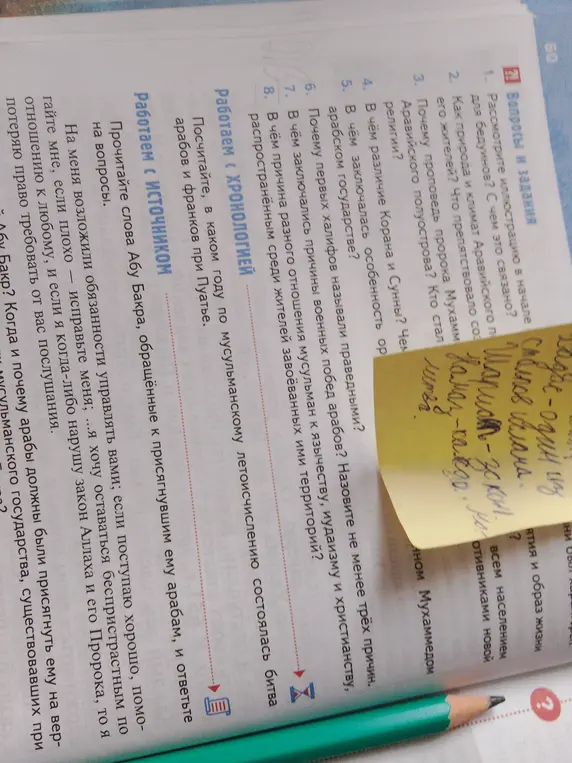 60
Вопросы и задания
1. Рассмотрите иллюстрацию в начале
для бедуинов? С чем это связано?
2. Как природа и климат Аравийского
его жителей? Что препятствовало
3. Почему проповедь пророка
Аравийского полуострова? Кто стал
религии?
ятия и образ жизни
всем населением
отивниками новой
4. В чём различие Корана и Сунны?
Мухаммедом
5. В чём заключалась особенность
арабском государстве?
6. Почему первых халифов называли праведными?
7. В чём заключались причины военных побед арабов? Назовите не менее трёх причин.
8. В чём причина разного отношения мусульман к язычеству, иудаизму и христианству,
распространённым среди жителей завоёванных ими территорий?
Работаем с хронологией
Посчитайте, в каком году по мусульманскому летоисчислению состоялась битва
арабов и франков при Пуатье.
Работаем с источником
Прочитайте слова Абу Бакра, обращённые к присягнувшим ему арабам, и ответьте
на вопросы.
На меня возложили обязанности управлять вами; если поступаю хорошо, помо-
гайте мне, если плохо — исправьте меня; ...я хочу оставаться беспристрастным по
отношению к любому, и если я когда-либо нарушу закон Аллаха и его Пророка, то я
потеряю право требовать от вас послушания.
Абу Бакр? Когда и почему арабы должны были присягнуть ему на вер-
мусульманского государства, существовавших при
один из
?